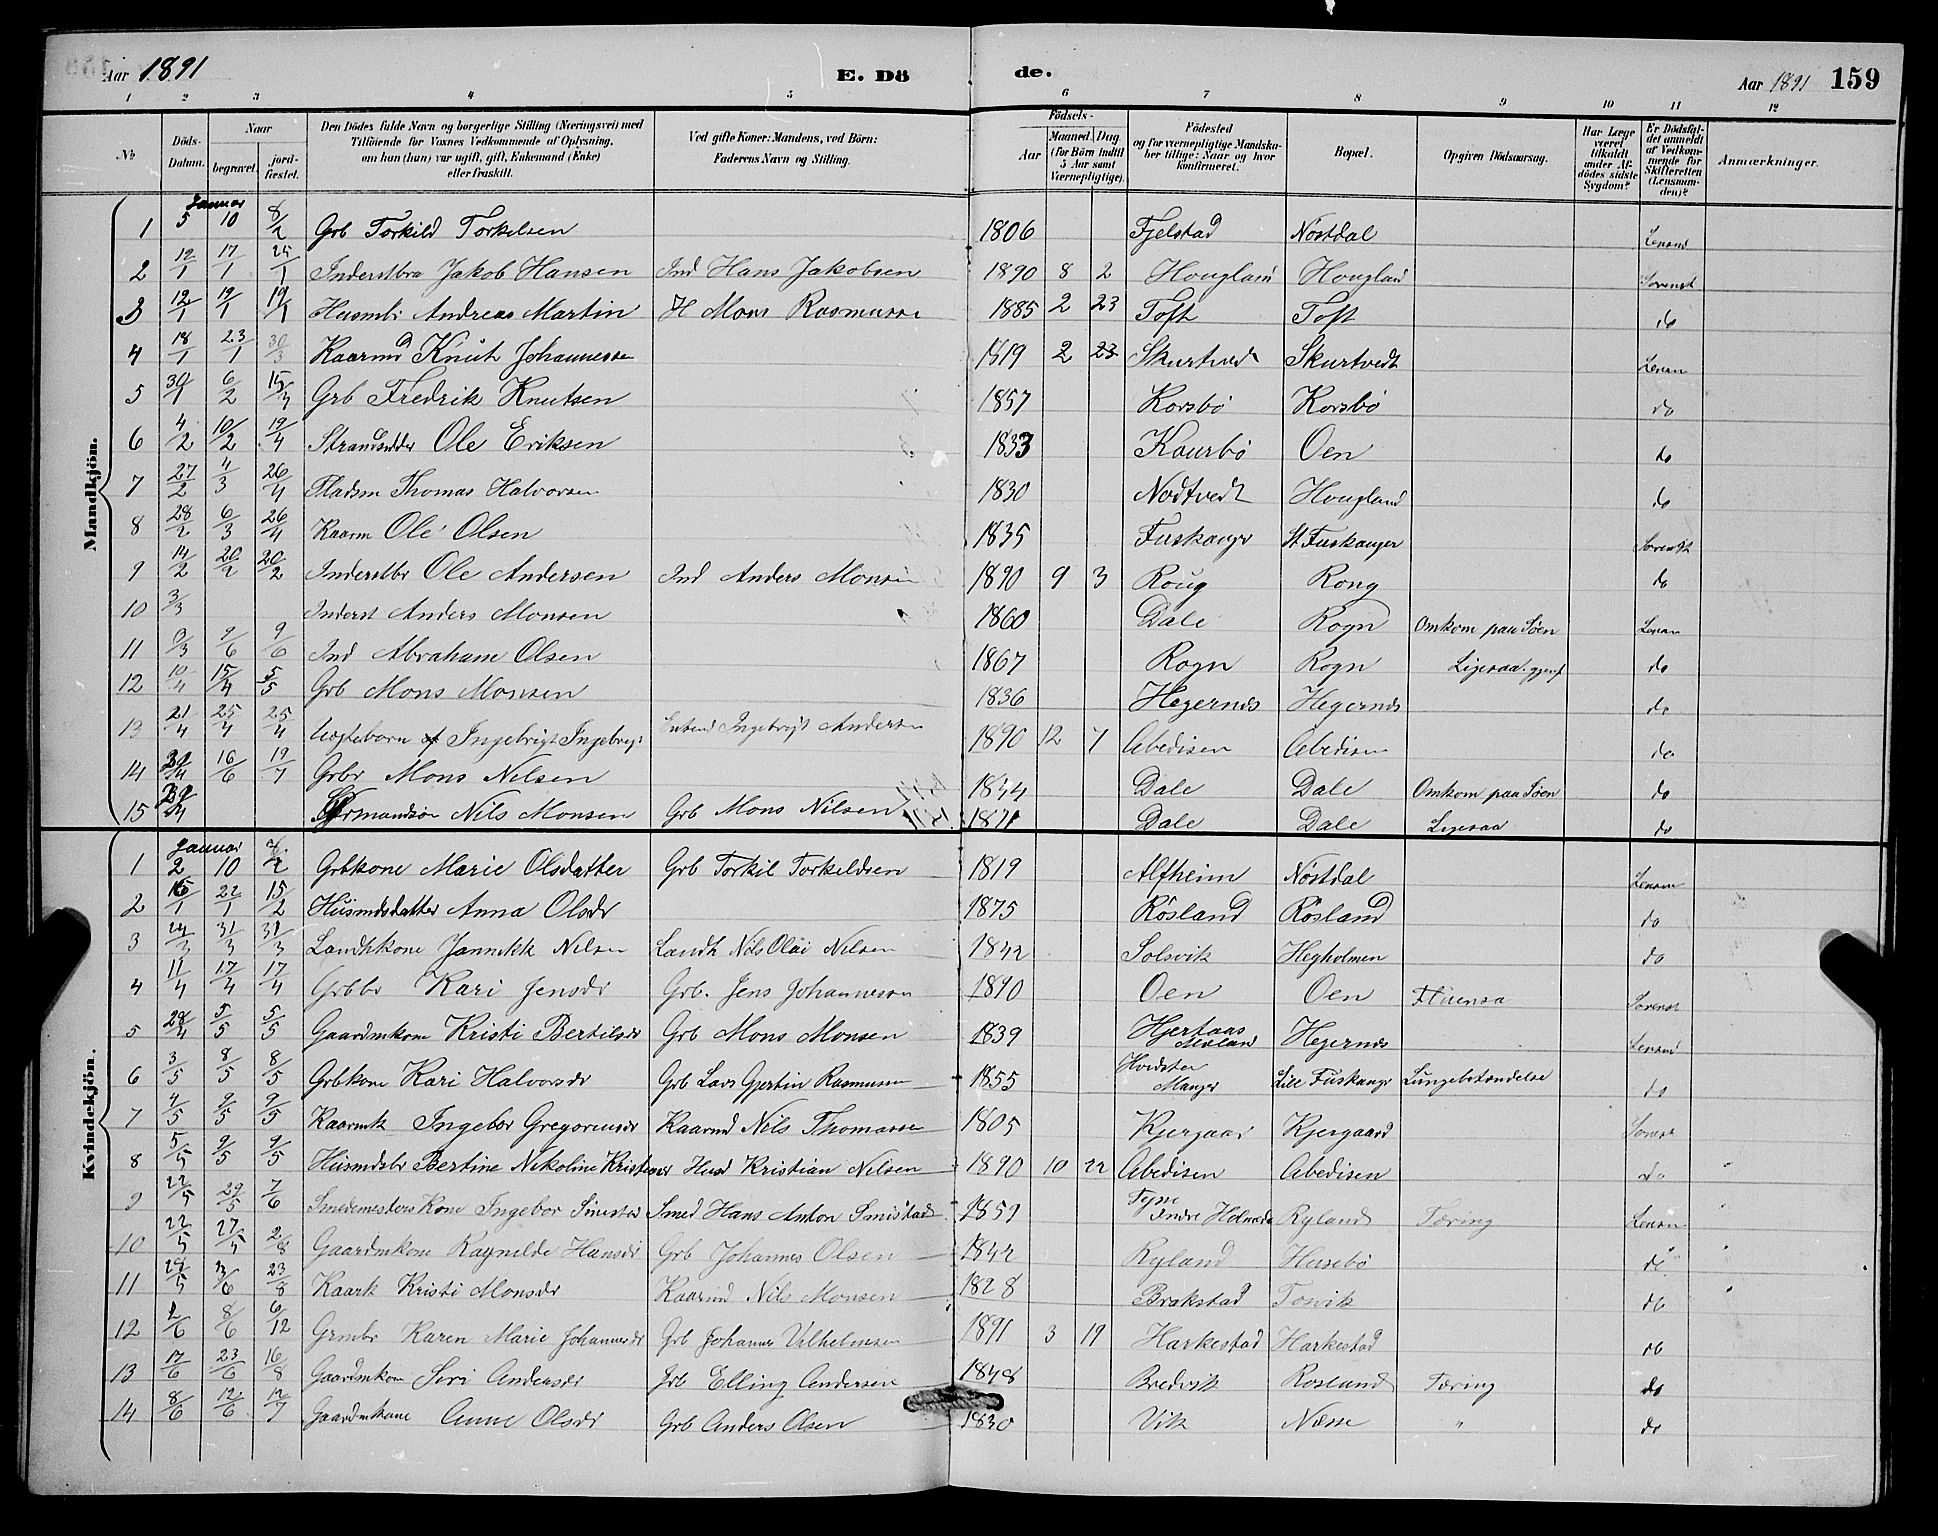 Aar 1891 E. Dö de. Aar 1891 159
1 2 3 4 5 6 7 8 9 10 11 12
No Döds-Datum. Naar begravet. jord-fæstet. Den Dödes fulde Navn og borgerlige Stilling (Næringsvei) med Tilföiende for Voxnes Vedkommende af Oplysning, om han (hun) var ugift, gift, Enkemand (Enke) eller fraskilt. Ved gifte Koner: Mandens, ved Börn: Faderens Navn og Stilling. Födsels- Aar Maaned Dag (for Börn indtil 5 Aar samt Værnepligtige). Födested og for værnepligtige Mandskaber tillige: Naar og hvor konfirmeret. Bopæl. Opgiven Dödsaarsag. Har Læge været tilkaldt under Afdödes sidste Sygdom? Er Dödsfaldet anmeldt af Vedkommende for Skifteretten (Lensmanden)? Anmærkninger.
Mandkjön.
Januar
1 5 10 8/2 Grb Torkild Torkelsen 1806 Fjelstad Nöstdal Lensmd
2 12/1 17/1 25/1 Inderstbrn Jakob Hansen Ind Hans Jakobsen 1890 8 2 Hougland Hougland Sorenst
3 12/1 19/1 19/1 Husmbr Andreas Martin H Mons Rasmusse 1885 2 23 Toft Toft do
4 18/1 23/1 30/3 Kaarmd Knut Johannesse 1819 2 23 Skurtvedt Skurtvedt Lensm
5 30/1 6/2 15/4 Grb Fredrik Knutsen 1857 Korsbö Korsbö do
6 4/2 10/2 19/4 Strandsidder Ole Eriksen 1833 Kourbö Oen do
7 27/2 4/3 26/4 Pladsm Thomas Halvorsen 1830 Nodtvedt Hougland do
8 28/2 6/3 26/4 Kaarm Ole Olsen 1835 Fuskanger St Fuskanger Sorenst
9 14/2 20/2 20/2 Inderstbr Ole Andersen Ind Anders Monsen 1890 9 3 Roug Rong do
10 3/3 Inderst Anders Monsen 1860 Dale Rogn Omkom paa Søen Lensm
11 3/3 9/6 9/6 Ind Abraham Olsen 1867 Rogn Rogn Ligesaa do
12 10/4 15/4 5/5 Grb Mons Monsen 1836 Hegernes Hegernes do
13 21/4 25/4 25/4 Uægteborn Ingebrigt Ingebrigt Ingebrigt Andersen 1890 12 7 Abedisen Abedisen do
14 30/4 16/6 19/7 Grbr Mons Nilsen 1844 Dale Dale Omkom paa Søen do
15 Grmandsøn Nils Monsen Grb Mons Nilsen 1871 Dale Dale Ligesaa do
Kvindekjön.
Januar
1 2 10 8/2 Grbkone Marie Olsdatter Grb Torkil Torkeldsen 1819 Alfheim Nöstdal Lensm
2 15/1 22/1 15/2 Husmdsdatter Anna Olsdr 1875 Rösland Rösland do
3 24/3 31/3 31/3 Landhkone Jannikk Nilsen Landh Nils Olai Nilsen 1842 Solsvik Hegholmen do
4 11/4 17/4 17/4 Grbbr Kari Jensdr Grb. Jens Johannessen 1890 Oen Oen Sorenst
5 28/4 5/5 5/5 Gaardmkone Kristi Bertilsdr Grb Mons Monsen 1839 Hjertaas Hegernes Lensmd
6 3/5 8/5 8/5 Grbkone Kari Halvorsdr Grb Lars Gjertin Rasmussen 1855 Manger Lille Fuskanger Lungebetændelse do
7 4/5 9/5 9/5 Kaarmk Ingebor Gregoriusdr Kaarmd Nils Thomassen 1805 Kjergaar Kjergaard Sorenst
8 5/5 9/5 9/5 Husmdsbr Bertine Nikoline Kristiansdr Husd Kristian Nilsen 1890 10 22 Abedisen Abedisen do
9 22/5 29/5 7/6 Smedemesters Kone Ingebor Smistad Smed Hans Anton Smistad 1859 Indre Holmedal Ryland Tæring Lensm
10 22/5 27/5 2/8 Gaardmkone Ragnilde Hansdr Grb Johannes Olsen 1842 Ryland Husebö do
11 28/5 3/6 23/8 Kaark Kristi Monsdr Kaarmd Nils Monsen 1828 Brakstad Tosvik do
12 2/6 8/6 6/12 Grmbr Karen Marie Johannesdr Grb Johannes Vilhelmsen 1891 3 19 Harkestad Harkestad do
13 17/6 23/6 16/8 Gaardmkone Siri Andersdr Grb Elling Andersen 1848 Bredvik Rosland Tæring do
14 8/6 12/6 12/7 Gaardmkone Anne Olsdr Grb Anders Olsen 1830 Vik Næsse " do